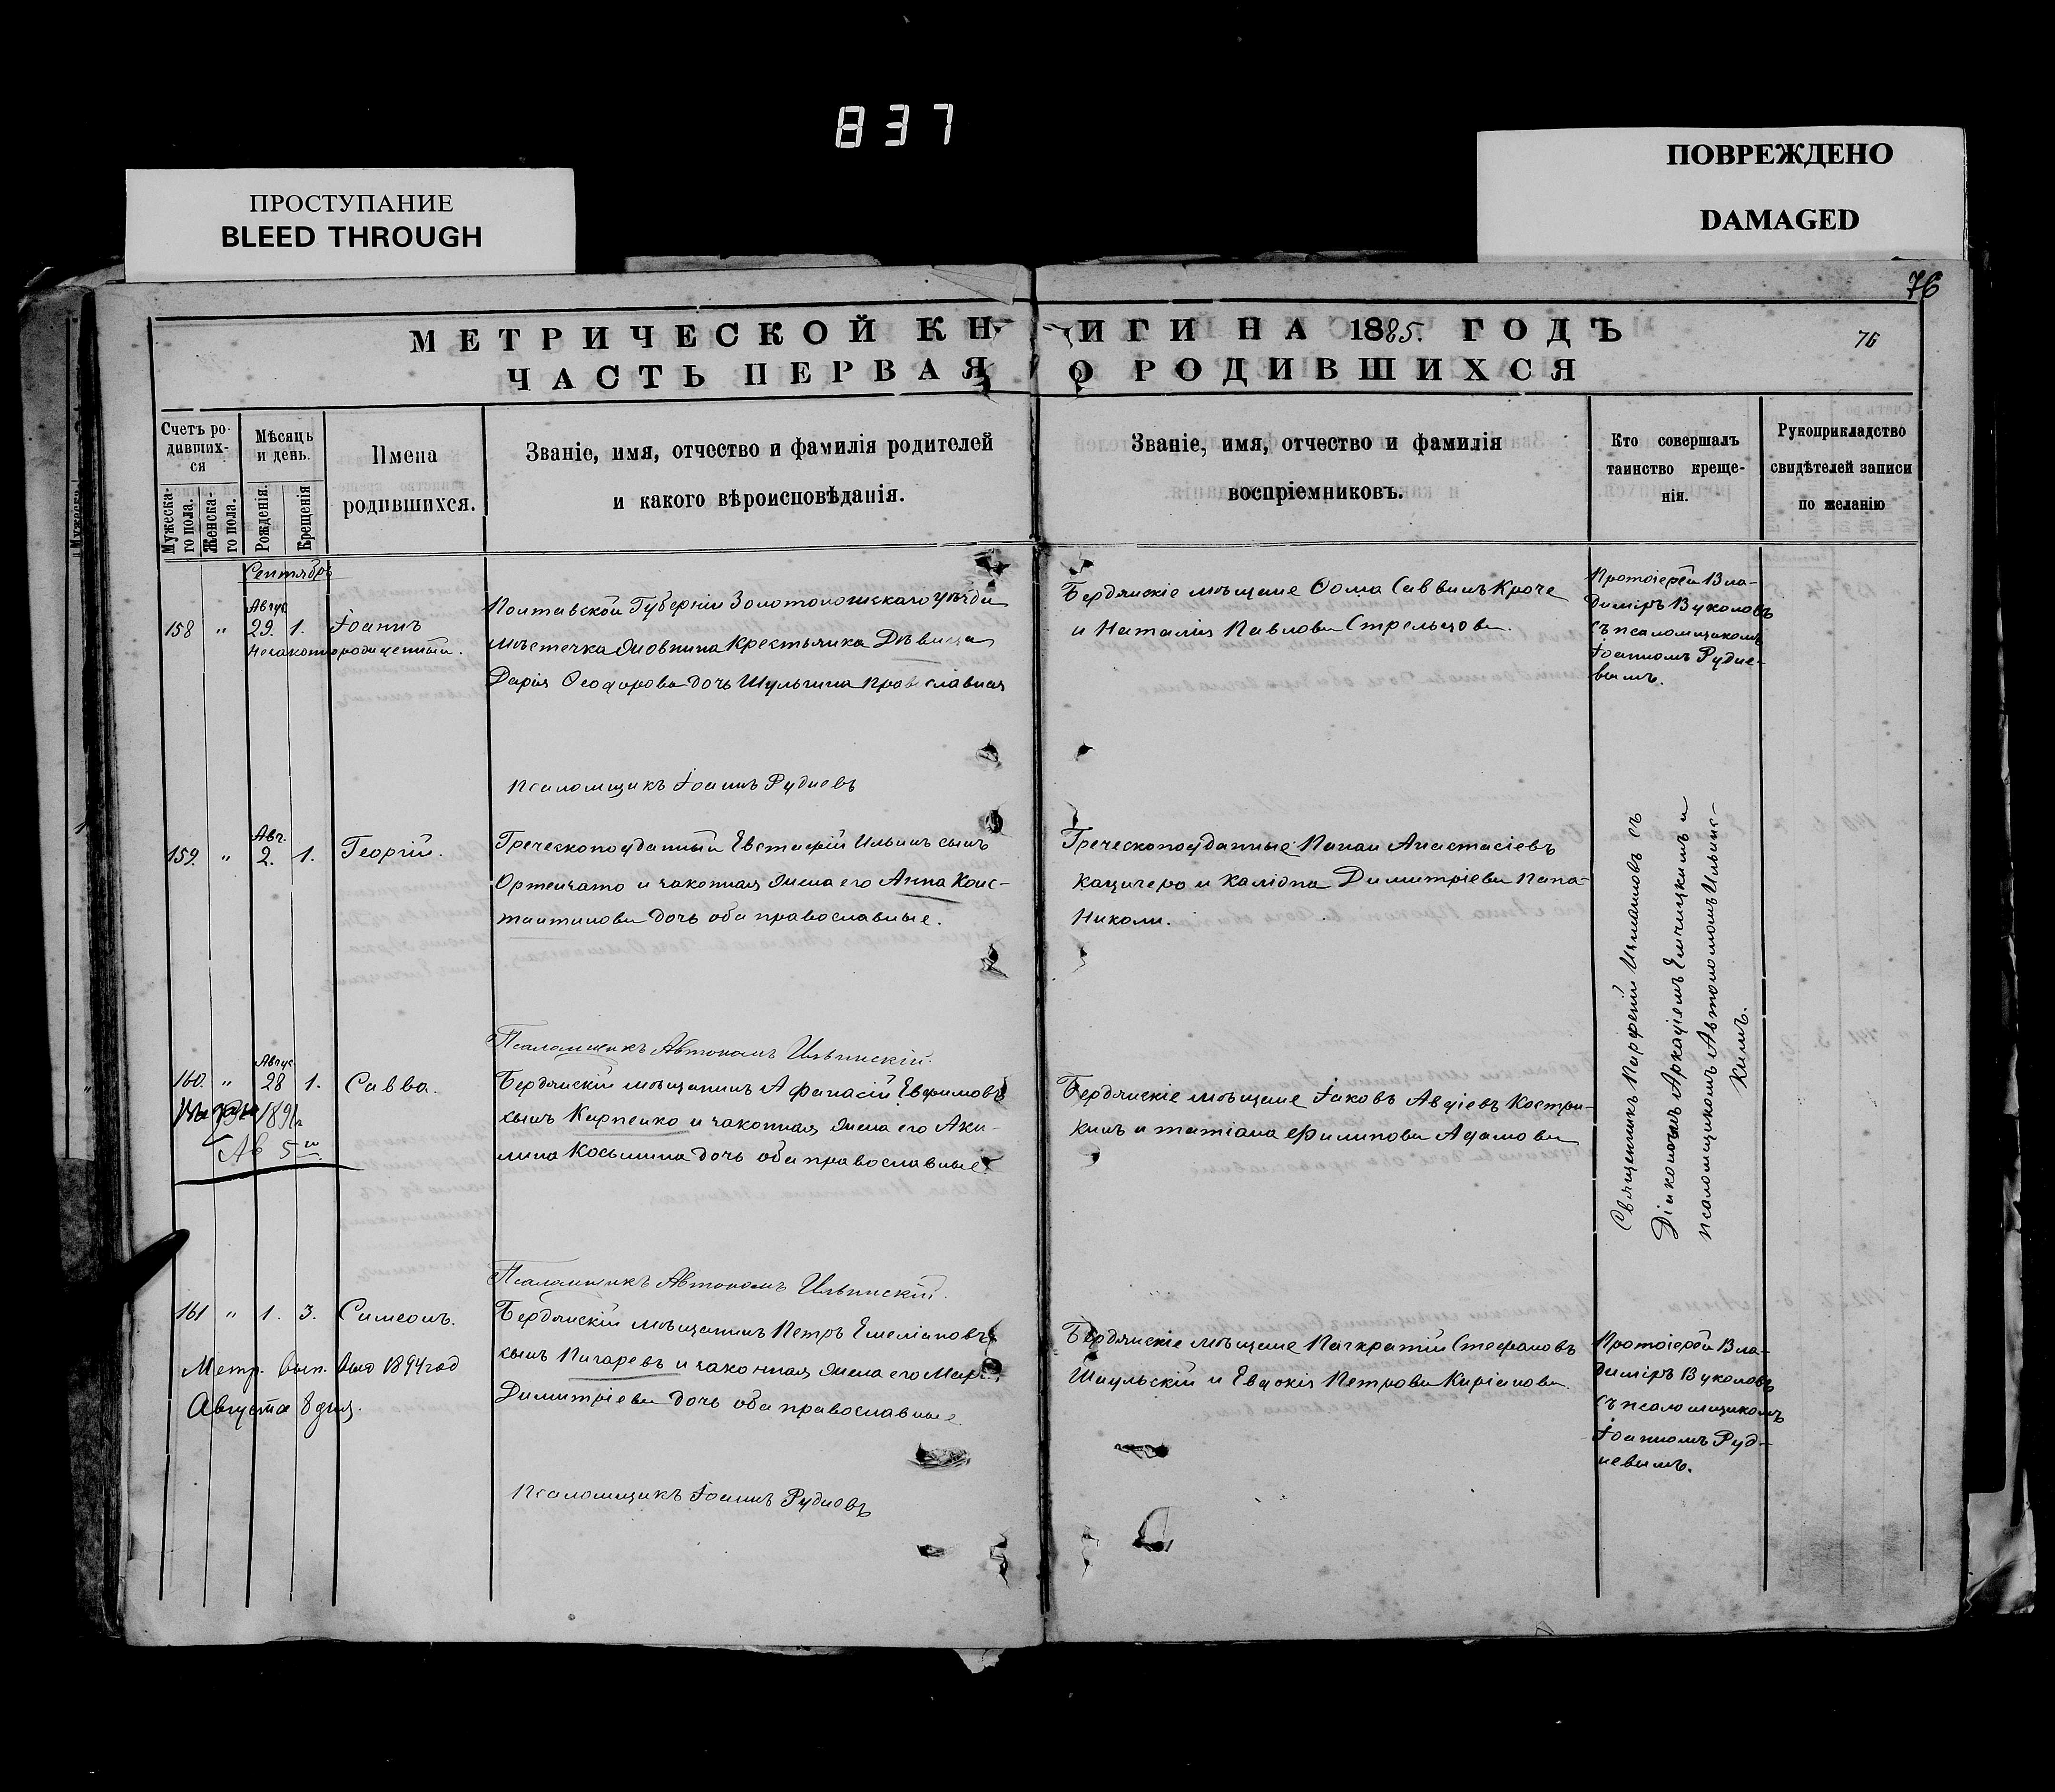 837
ПРОСТУПАНИЕ
BLEED THROUGH
ПОВРЕЖДЕНО
DAMAGED
76
76
МЕТРИЧЕСКОЙ КНИГИ НА 1885. ГОДЪ
ЧАСТЬ ПЕРВАЯ О РОДИВШИХСЯ
Счетъ ро-
дивших-
ся
Мужеска-
го пола.
Женска-
го пола.
Мѣсяцъ
и день.
Рожденія.
Крещенія
Имена
родившихся.
Званіе, имя, отчество и фамилія родителей
и какого вѣроисповѣданія.
Званіе, имя, отчество и фамилія
воспріемниковъ.
Кто совершалъ
таинство креще-
нія.
Рукоприкладство
свидѣтелей записи
по желанію
Сентябрь
158 " Авгус 29. 1. Іоаннъ
Незаконнорожденный.
Полтавской Губерніи Золотоношскаго уѣзда
мѣстечка Крестьянка Дѣвица
Дарія Ѳеодорова дочь Шульгина православная
Бердянскіе мѣщане Ѳома Саввинъ Кроче
и Наталія Павлова Стрельцова.
Протоіерей Вла-
диміръ Вуколовъ
съ псаломщикомъ
Іоанномъ Рудне-
вымъ.
Псаломщикъ Іоаннъ Рудневъ
159. " Авг. 2. 1. Георгій.
Греческоподданный Евстафій Ильинъ сынъ
и законная жена его Анна Конс-
тантинова дочь оба православные.
Греческоподданные Анастасіевъ
и Димитріева Папа-
Николи.
Священникъ Парфеній съ
Діакономъ Аркадіемъ и
псаломщикомъ Автономомъ Ильинс-
кимъ.
Псаломщикъ Автономъ Ильинскій.
160. " Авгус 28 1. Савва.
1891г
Ав 5го
Бердянскій мѣщанинъ Афанасій Евфимовъ
сынъ Карпенко и законная жена его Аки-
лина Косьмина дочь оба православные.
Бердянскіе мѣщане Іаковъ Авдіевъ Костри-
кинъ и Татіана Филипова Адамова
Псаломщикъ Автономъ Ильинскій.
161 " 1. 3. Симеонъ.
Метр. вып. выд 1894 год
Августа 8 дня.
Бердянскій мѣщанинъ Петръ Емеліановъ
сынъ Пигаревъ и законная жена его Марія
Димитріева дочь оба православные
Бердянскіе мѣщане Панкратій Стефановъ
Шаульскій и Евдокія Петрова Киріанова.
Протоіерей Вла-
диміръ Вуколовъ
съ псаломщикомъ
Іоанномъ Руд-
невымъ.
Псаломщикъ Іоаннъ Рудневъ